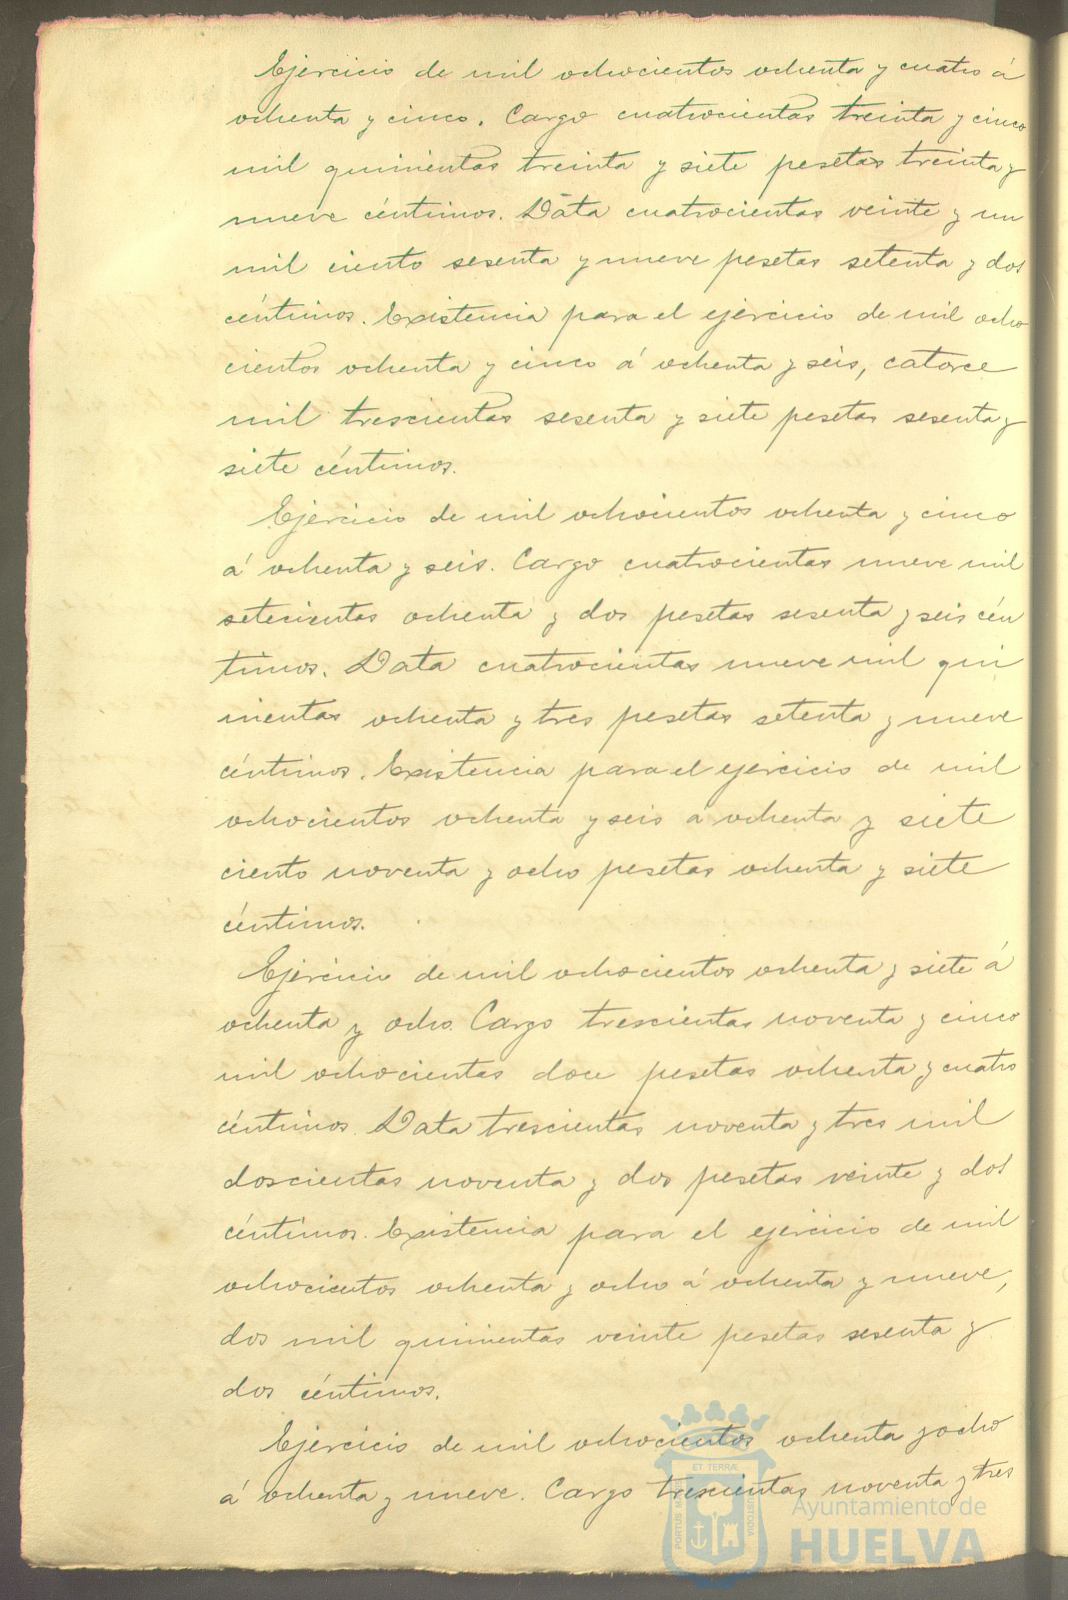 Ejercicio de mil ochocientos ochenta y cuatro á
ochenta y cinco. Cargo cuatrocientas treinta y cinco
mil quinientas treinta y siete pesetas treinta y
nueve céntimos. Data cuatrocientas veinte y un
mil ciento sesenta y nueve pesetas setenta y dos
céntimos. Existencia para el ejercicio de mil ocho
cientos ochenta y cinco á ochenta y seis, catorce
mil trescientas sesenta y siete pesetas sesenta y
siete céntimos.
Ejercicio de mil ochocientos ochenta y cinco
á ochenta y seis. Cargo cuatrocientas nueve mil
setecientas ochenta y dos pesetas sesenta y seis cén
timos. Data cuatrocientas nueve mil qui
nientas ochenta y tres pesetas setenta y nueve
céntimos. Existencia para el ejercicio de mil
ochocientos ochenta y seis á ochenta y siete
ciento noventa y ocho pesetas ochenta y siete
céntimos.
Ejercicio de mil ochocientos ochenta y siete á
ochenta y ocho. Cargo trescientas noventa y cinco
mil ochocientas doce pesetas ochenta y cuatro
céntimos. Data trescientas noventa y tres mil
doscientas noventa y dos pesetas veinte y dos
céntimos. Existencia para el ejercicio de mil
ochocientos ochenta y ocho á ochenta y nueve,
dos mil quinientas veinte pesetas sesenta y
dos céntimos.
Ejercicio de mil ochocientos ochenta y ocho
á ochenta y nueve. Cargo trescientas noventa y tres
PORTUS MARIS ET TERRÆ CUSTODIA
Ayuntamiento de
HUELVA